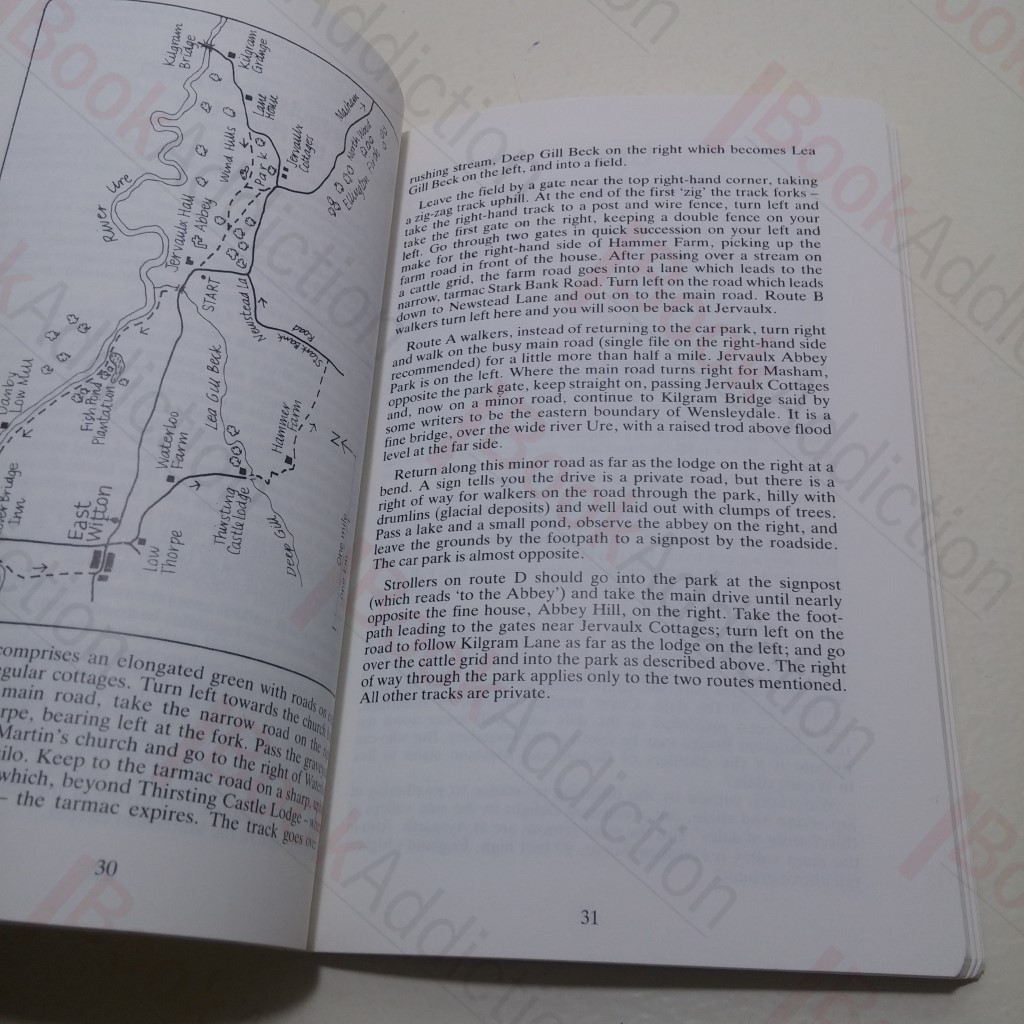 Kilgram
Bridge
Kilgram
Grange
Lane
House
Masham
Wind Hills
Park
Jervaulx
Cottages
North Wood
Ellington Firth
River Ure
Jervaulx Hall
Abbey
START
Newstead La
Stark Bank
Road
Danby
Low Mill
Fish Pond
Plantation
Lea Gill Beck
Waterloo
Farm
Hammer
Farm
N
Bridge
Inn
East
Witton
Low
Thorpe
Thirsting
Castle Lodge
Deep Gill
one mile
comprises an elongated green with roads on
regular cottages. Turn left towards the church
main road, take the narrow road on the
bearing left at the fork. Pass the
Martin's church and go to the right of
silo. Keep to the tarmac road on a sharp,
which, beyond Thirsting Castle Lodge –
– the tarmac expires. The track goes
30
rushing stream, Deep Gill Beck on the right which becomes Lea
Gill Beck on the left, and into a field.
Leave the field by a gate near the top right-hand corner, taking
a zig-zag track uphill. At the end of the first 'zig' the track forks –
take the right-hand track to a post and wire fence, turn left and
take the first gate on the right, keeping a double fence on your
left. Go through two gates in quick succession on your left and
make for the right-hand side of Hammer Farm, picking up the
farm road in front of the house. After passing over a stream on
a cattle grid, the farm road goes into a lane which leads to the
narrow, tarmac Stark Bank Road. Turn left on the road which leads
down to Newstead Lane and out on to the main road. Route B
walkers turn left here and you will soon be back at Jervaulx.
Route A walkers, instead of returning to the car park, turn right
and walk on the busy main road (single file on the right-hand side
recommended) for a little more than half a mile. Jervaulx Abbey
Park is on the left. Where the main road turns right for Masham,
opposite the park gate, keep straight on, passing Jervaulx Cottages
and, now on a minor road, continue to Kilgram Bridge said by
some writers to be the eastern boundary of Wensleydale. It is a
fine bridge, over the wide river Ure, with a raised trod above flood
level at the far side.
Return along this minor road as far as the lodge on the right at a
bend. A sign tells you the drive is a private road, but there is a
right of way for walkers on the road through the park, hilly with
drumlins (glacial deposits) and well laid out with clumps of trees.
Pass a lake and a small pond, observe the abbey on the right, and
leave the grounds by the footpath to a signpost by the roadside.
The car park is almost opposite.
Strollers on route D should go into the park at the signpost
(which reads 'to the Abbey') and take the main drive until nearly
opposite the fine house, Abbey Hill, on the right. Take the foot-
path leading to the gates near Jervaulx Cottages; turn left on the
road to follow Kilgram Lane as far as the lodge on the left; and go
over the cattle grid and into the park as described above. The right
of way through the park applies only to the two routes mentioned.
All other tracks are private.
31
BookAddiction